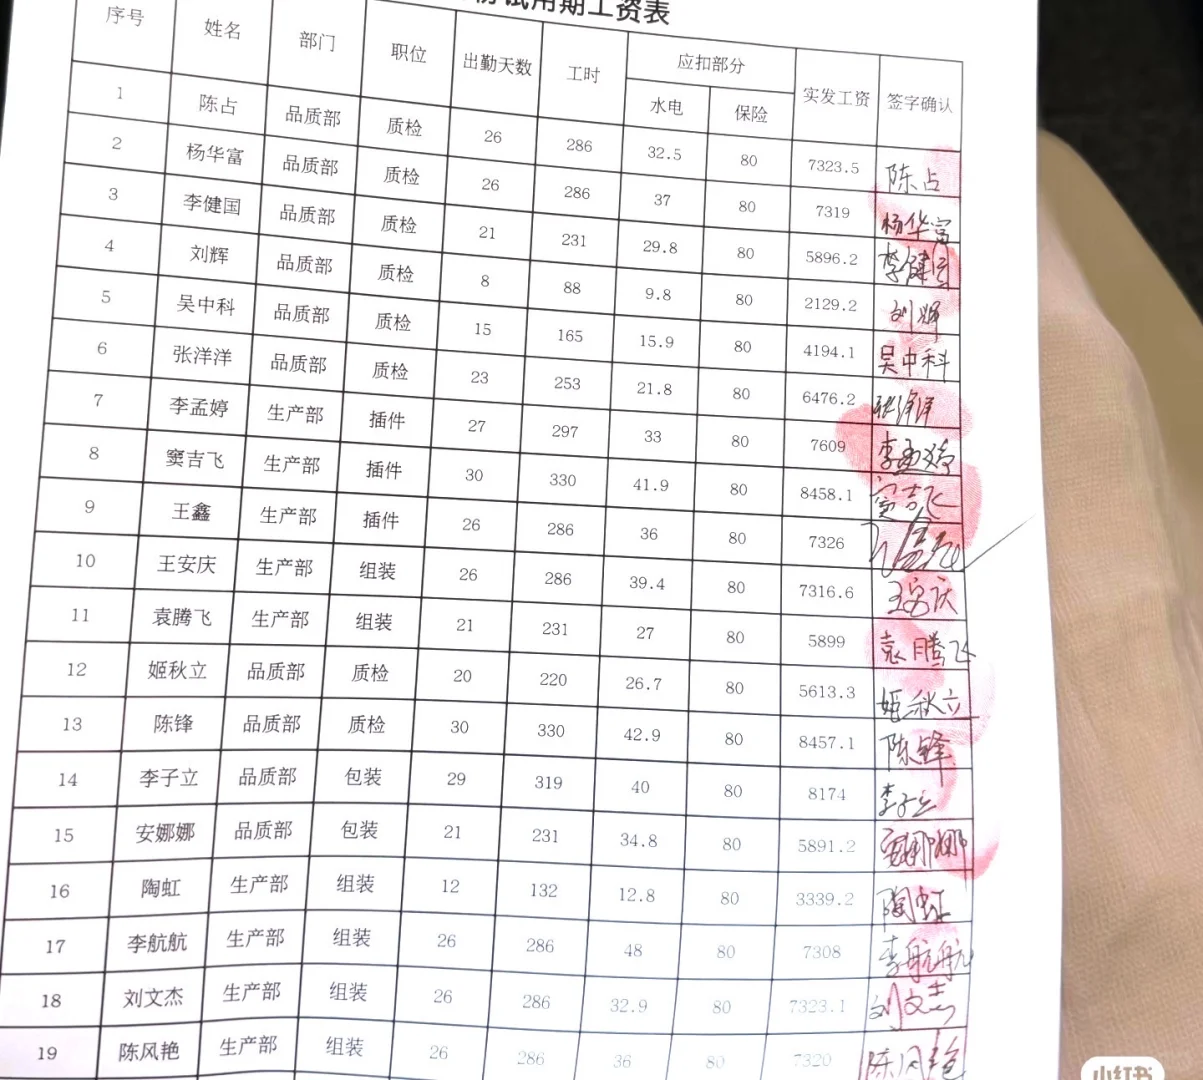 试用期工资表
序号 姓名 部门 职位 出勤天数 工时 应扣部分 实发工资 签字确认
水电 保险
1 陈占 品质部 质检 26 286 32.5 80 7323.5 陈占
2 杨华富 品质部 质检 26 286 37 80 7319 杨华富
3 李健国 品质部 质检 21 231 29.8 80 5896.2 李健国
4 刘辉 品质部 质检 8 88 9.8 80 2129.2 刘辉
5 吴中科 品质部 质检 15 165 15.9 80 4194.1 吴中科
6 张洋洋 品质部 质检 23 253 21.8 80 6476.2 张洋洋
7 李孟婷 生产部 插件 27 297 33 80 7609 李孟婷
8 窦吉飞 生产部 插件 30 330 41.9 80 8458.1 窦吉飞
9 王鑫 生产部 插件 26 286 36 80 7326
10 王安庆 生产部 组装 26 286 39.4 80 7316.6 王安庆
11 袁腾飞 生产部 组装 21 231 27 80 5899 袁腾飞
12 姬秋立 品质部 质检 20 220 26.7 80 5613.3 姬秋立
13 陈锋 品质部 质检 30 330 42.9 80 8457.1 陈锋
14 李子立 品质部 包装 29 319 40 80 8174 李子立
15 安娜娜 品质部 包装 21 231 34.8 80 5891.2 安娜娜
16 陶虹 生产部 组装 12 132 12.8 80 3339.2 陶虹
17 李航航 生产部 组装 26 286 48 80 7308 李航航
18 刘文杰 生产部 组装 26 286 32.9 80 7323.1 刘文杰
19 陈风艳 生产部 组装 26 286 36 80 7320 陈风艳
小红书